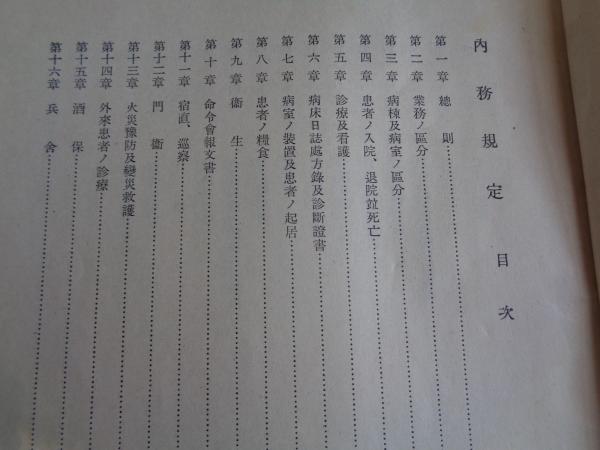 內務規定 目次
第一章 總則
第二章 業務ノ區分
第三章 病棟及病室ノ區分
第四章 患者ノ入院、退院竝死亡
第五章 診療及看護
第六章 病床日誌處方錄及診斷證書
第七章 病室ノ裝置及患者ノ起居
第八章 患者ノ糧食
第九章 衞生
第十章 命令會報文書
第十一章 宿直、巡察
第十二章 門衞
第十三章 火災豫防及變災救護
第十四章 外來患者ノ診療
第十五章 酒保
第十六章 兵舍